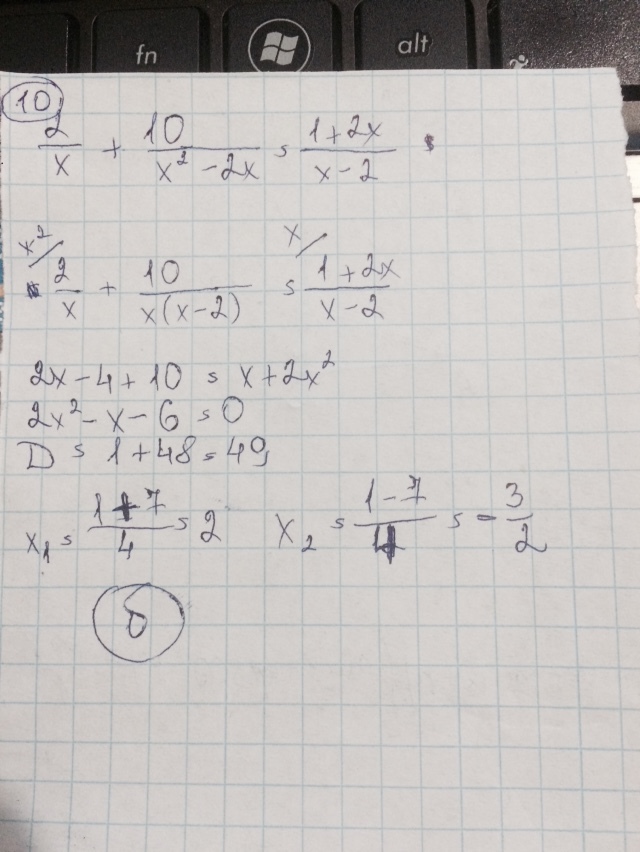 fn alt
10
2/x + 10/(x² - 2x) = (1+2x)/(x-2)
x² x
2/x + 10/(x(x-2)) = (1+2x)/(x-2)
2x-4+10 = x+2x²
2x²-x-6=0
D = 1+48=49
x₁ = (1+7)/4 = 2 x₂ = (1-7)/4 = -3/2
б